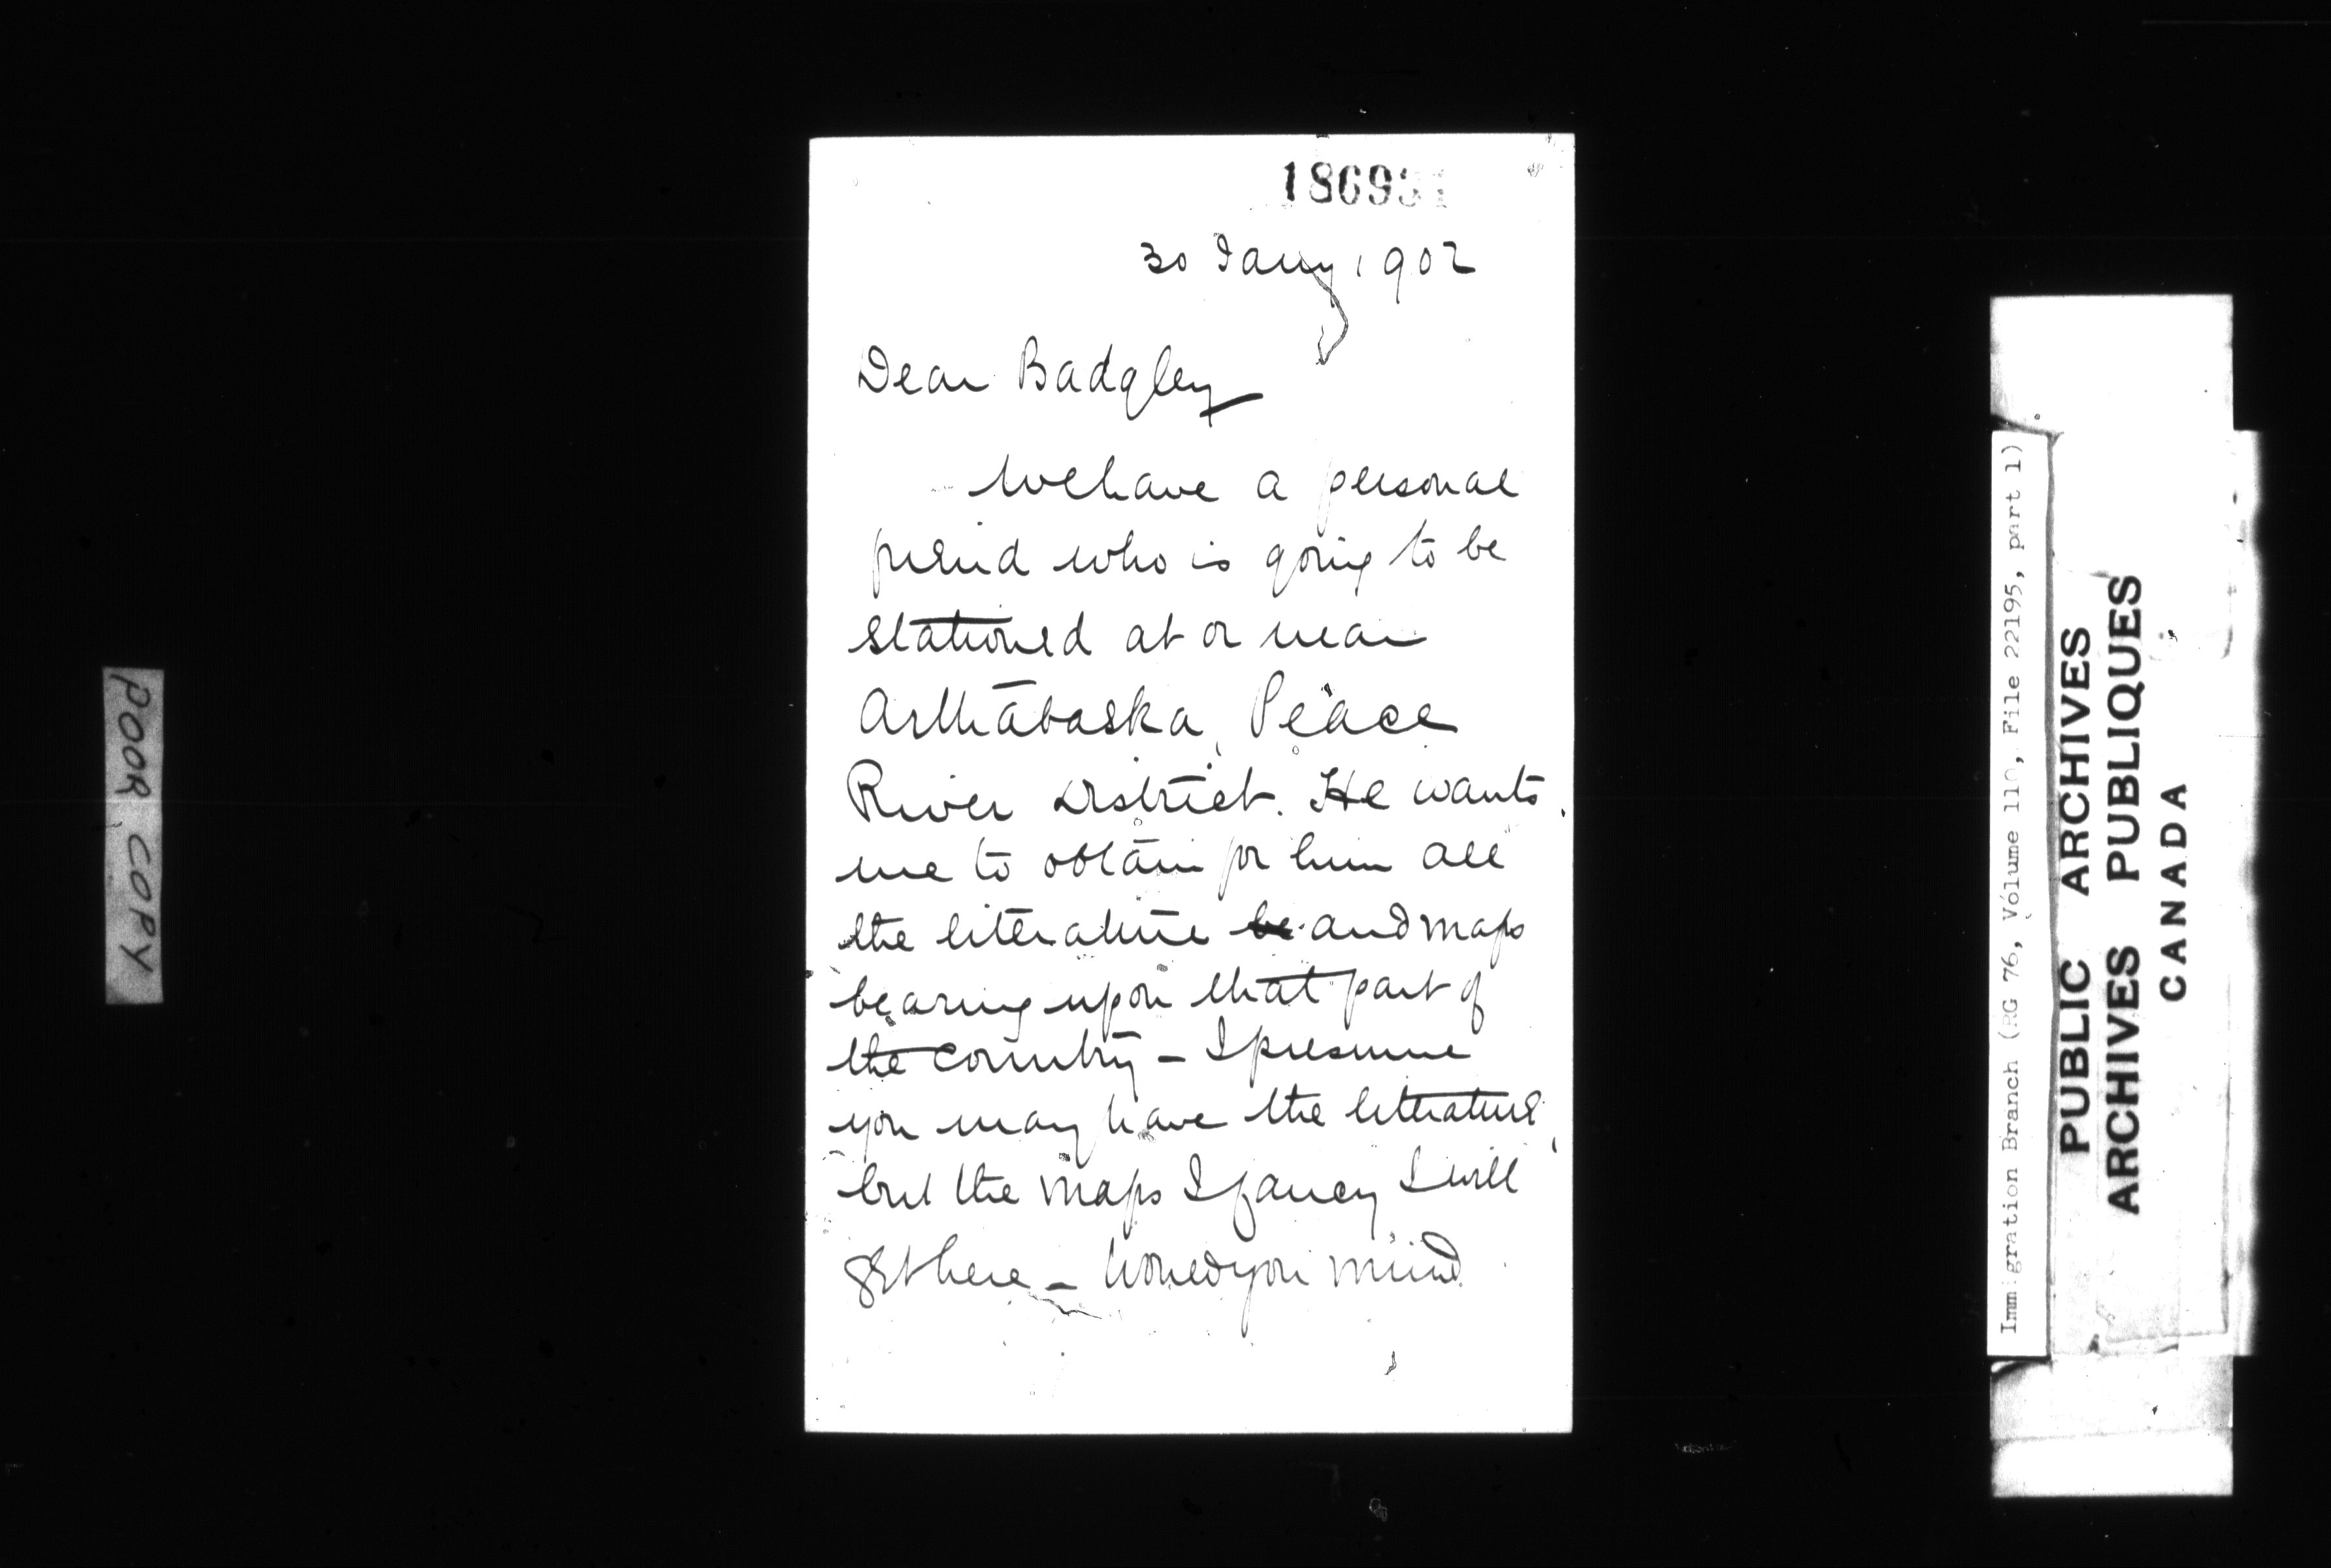 186931
30 Jany 1902
Dear Badgley
We have a personal
friend who is going to be
stationed at or near
Arthabaska, Peace
River District. He wants
me to obtain for him all
the literature be and maps
bearing upon that part of
the country - I presume
you may have the literature,
but the maps I fancy I will
get here - Would you mind
POOR COPY
Immigration Branch (RG 76, Volume 110, File 22195, part 1)
PUBLIC ARCHIVES
ARCHIVES PUBLIQUES
CANADA